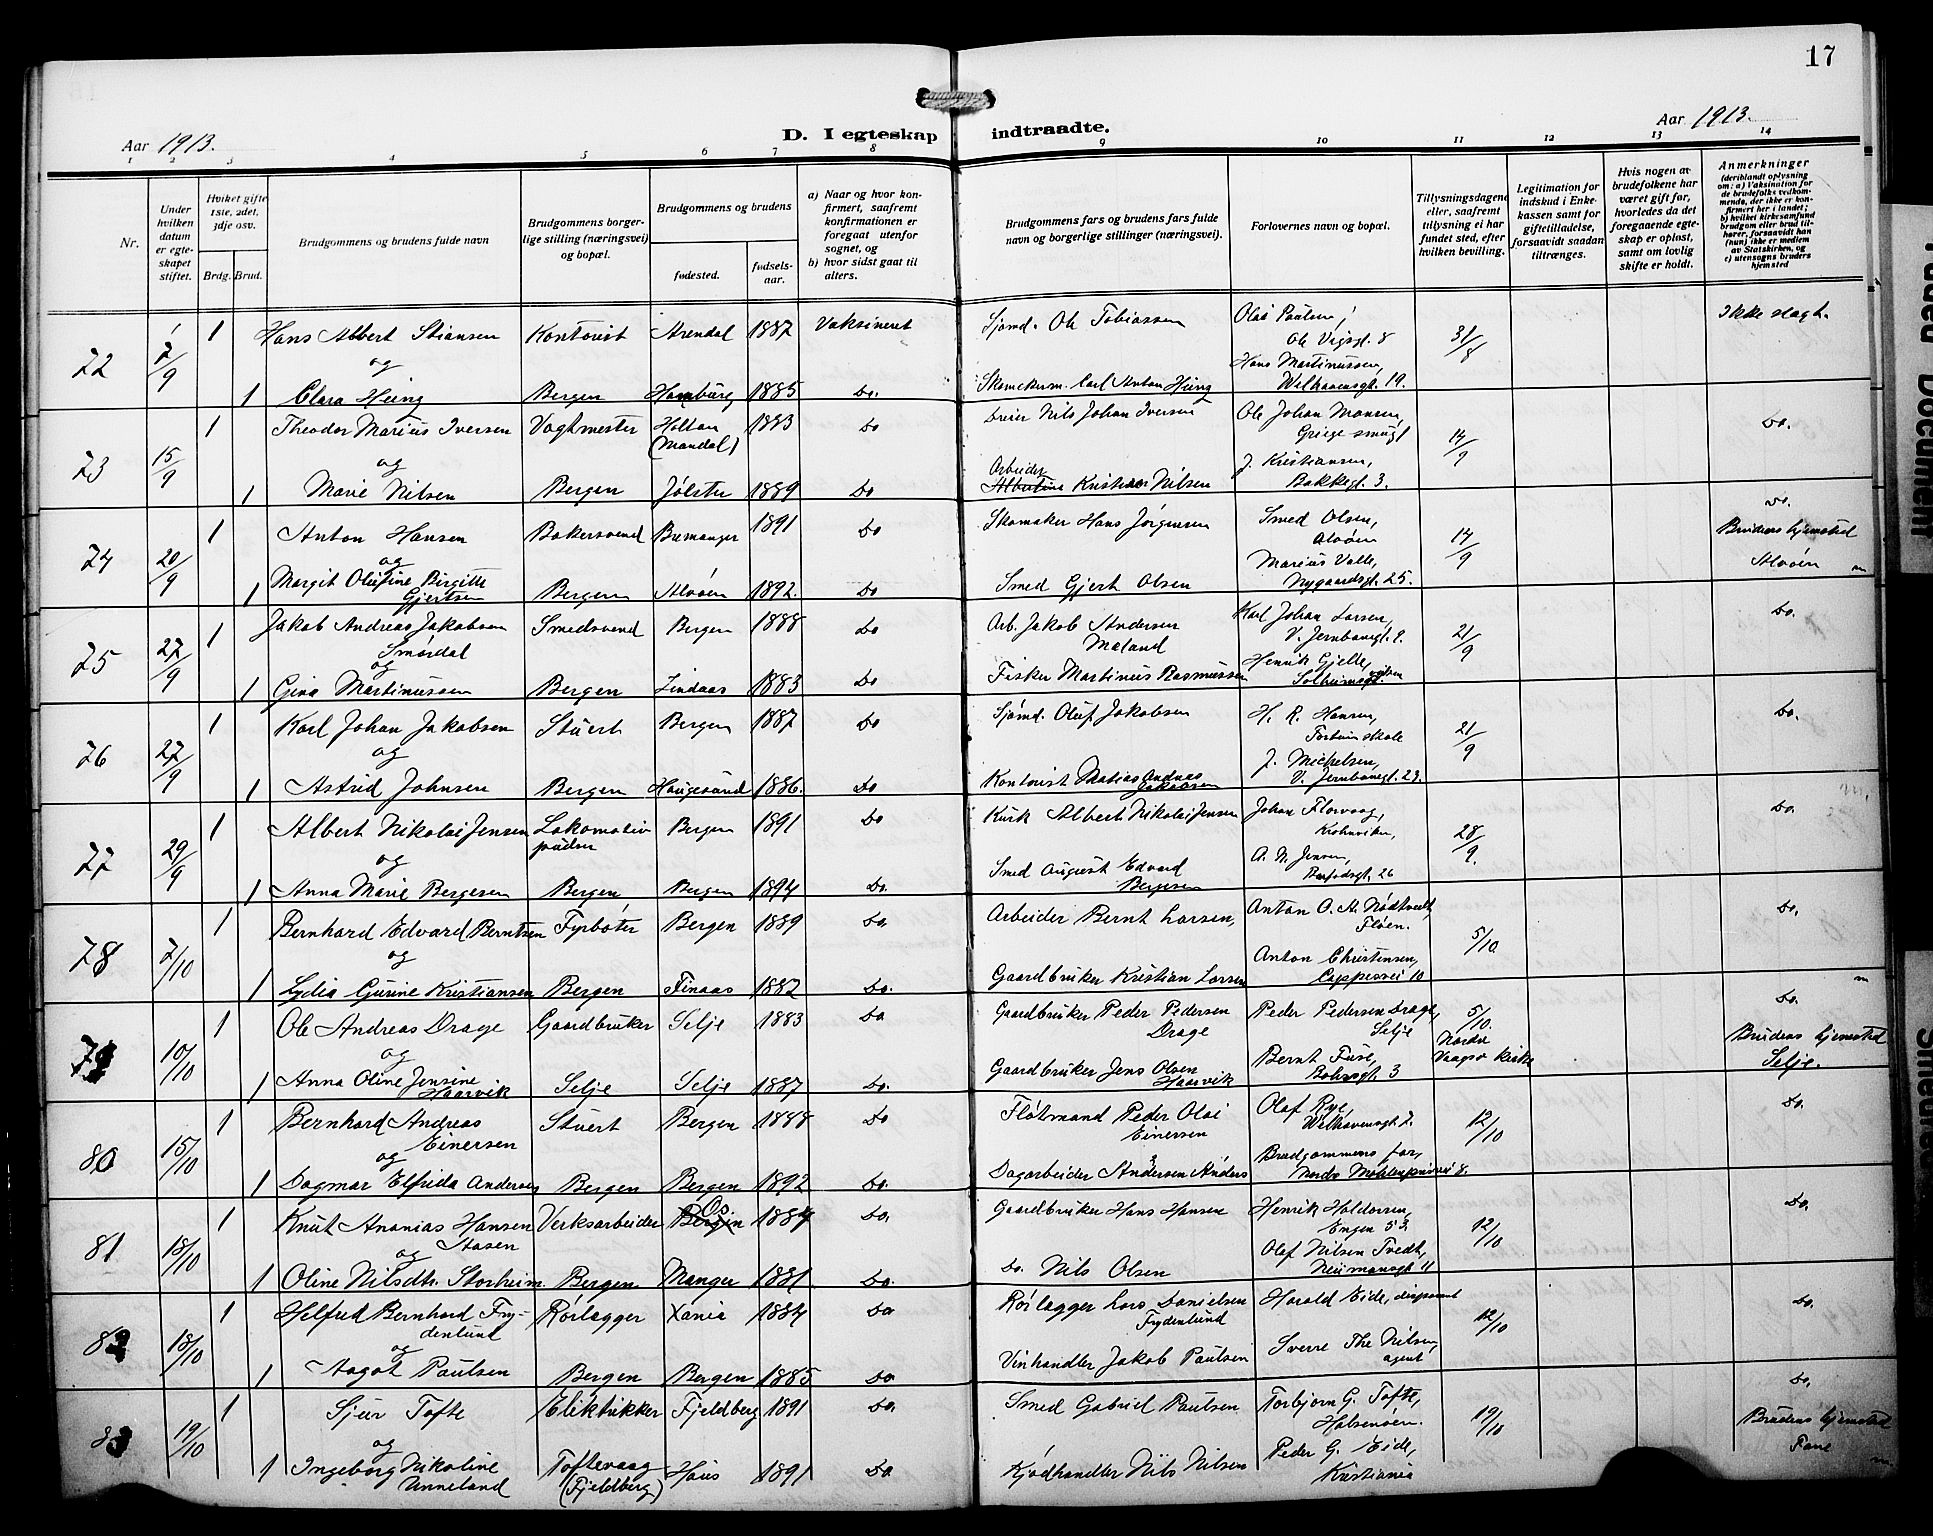 17
Aar 1913.
D. I egteskap indtraadte.
Aar 1913.
1 2 3 4 5 6 7 8 9 10 11 12 13 14
Nr.
Under hvilken datum er egteskapet stiftet.
Hvilket gifte 1ste, 2det, 3dje osv.
Brdg. Brud.
Brudgommens og brudens fulde navn
Brudgommens borgerlige stilling (næringsvei) og bopæl.
Brudgommens og brudens
fødested.
fødselsaar.
a) Naar og hvor konfirmert, saafremt konfirmationen er foregaat utenfor sognet, og
b) hvor sidst gaat til alters.
Brudgommens fars og brudens fars fulde navn og borgerlige stillinger (næringsvei).
Forlovernes navn og bopæl.
Tillysningsdagene eller, saafremt tillysning ei har fundet sted, efter hvilken bevilling.
Legitimation for indskud i Enkekassen samt for giftetilladelse, forsaavidt saadan tiltrænges.
Hvis nogen av brudefolkene har været gift før, hvorledes da det foregaaende egteskap er opløst, samt om lovlig skifte er holdt.
Anmerkninger
(deriblandt oplysning om: a) Vaksination for de brudefolks vedkommende, der ikke er konfirmert her i landet; b) hvilket kirkesamfund brudgom eller brud tilhører, forsaavidt han (hun) ikke er medlem av Statskirken, og c) utensogns bruders hjemsted
72 7/9 1 Hans Albert Stiansen Kontorist Arendal 1887 Vaksineret Sjømd. Ole Tobiassen Olai Paulsen, Ole Vigsgt. 8 31/8 Ikke slegt.
og Hans Martinussen,
1 Clara Heing Bergen Hamburg 1885 Do. Skomakerm. Carl Anton Heing Welhavensgt. 19.
73 15/9 1 Theodor Marius Iversen Vagtmester Holtan (Mandal) 1883 Do Nils Johan Iversen Ole Johan Monsen, Griegs smug 1 14/9 Do.
og Arbeider J. Kristiansen,
1 Marie Nilsen Bergen Jølster 1889 Do Kristian Nilsen Bakkegt. 3.
74 20/9 1 Anton Hansen Bakersvend Bremanger 1891 Do Skomaker Hans Jørgensen Smed Olsen, Alvøen 14/9 Do. Brudens hjemsted Alvøen
og Marius Valle,
1 Margit Olufine Birgitte Gjertsen Bergen Alvøen 1892. Do Smed Gjert Olsen Nygaardsgt. 25.
75 27/9 1 Jakob Andreas Jakobsen Smørdal Smedsvend Bergen 1888 Do Arb. Jakob Andersen Maland Karl Johan Larsen, V. Jernbanegt. 9. 21/9 Do.
og Henrik Gjelle,
1 Gina Martinussen Bergen Lindaas 1883 Do Fisker Martinus Rasmussen Solheimsgt.
76 27/9 1 Karl Johan Jakobsen Stuert Bergen 1887 Do Sjømd. Oluf Jakobsen H. R. Hansen, Fortun skole 21/9 Do.
og J. Michelsen,
1 Astrid Johnsen Bergen Haugesund 1886. Do Kontorist Matias Andreas Jakobsen V. Jernbanegt. 23.
77 29/9 1 Albert Nikolai Jensen Lokomotivpudser Bergen 1891 Do Kusk Albert Nikolai Jensen Johan Florvaag, Krohnviken, 28/9. Do.
og A. N. Jensen,
1 Anna Marie Bergesen Bergen Bergen 1894 Do. Smed August Edvard Bergesen 26
78 7/10 1 Bernhard Edvard Berntsen Fyrbøter Bergen 1889 Do. Arbeider Bernt Larsen, Anton O. A. Nødtvedt, Fløen. 5/10 Do.
og Anton Christensen,
1 Lydia Gurine Kristiansen Bergen Finaas 1887 Do. Gaardbruker Kristian Larsen Cappesvei 10
79 10/10 1 Ole Andreas Drage Gaardbruker Selje 1883 Do Gaardbruker Peder Pedersen Drage Peder Pedersen Drage, Selje 5/10. Nordre Vaagsø kirke Do. Brudens hjemsted Selje.
og Bernt Fure,
1 Anna Oline Jensine Haarvik Selje Selje 1887 Do. Gaardbruker Jens Olsen Haarvik Bohrsgt. 3
80 15/10 1 Bernhard Andreas Einersen Stuert Bergen 1888 Do Fløtmand Peder Olai Einersen Olaf Rye, Welhavensgt 7. 12/10 Do.
og Brudgommens far,
1 Dagmar Elfrida Andersen Bergen Bergen 1892 Do. Dagarbeider Andersen Anders Nordre 8.
81 18/10 1 Knut Ananias Hansen Aasen Verksarbeider Bergen Os. 1884 Do. Gaardbruker Hans Hansen Henrik Haldorsen, Engen 53. 12/10 Do.
og Olaf Nilsen Tvedt,
1 Oline Nilsdtr. Storheim. Bergen Manger 1881. Do. Do. Nils Olsen Neumansgt 11
82 18/10 1 Helfred Bernhard Frydenlund Rørlægger Xania 1884 Do Rørlægger Lars Danielsen Frydenlund Harald Eide, disponent 12/10 Do.
og Sverre The Nilsen, agent
1 Aagot Paulsen Bergen Bergen 1885 Do Vinhandler Jakob Paulsen
83 19/10 1 Sjur Tofte Elektrikker Fjeldberg 1891 Do. Smed Gabriel Paulsen Torbjørn G. Tofte, Halsenøen. 19/10 Do. Brudens hjemsted Fane
og Peder G. Eide,
1 Ingeborg Nikoline Unneland Toftevaag (Fjeldberg) Haus 1891 Do. Kjødhandler Nils Nilsen Kristiania
Faded Document